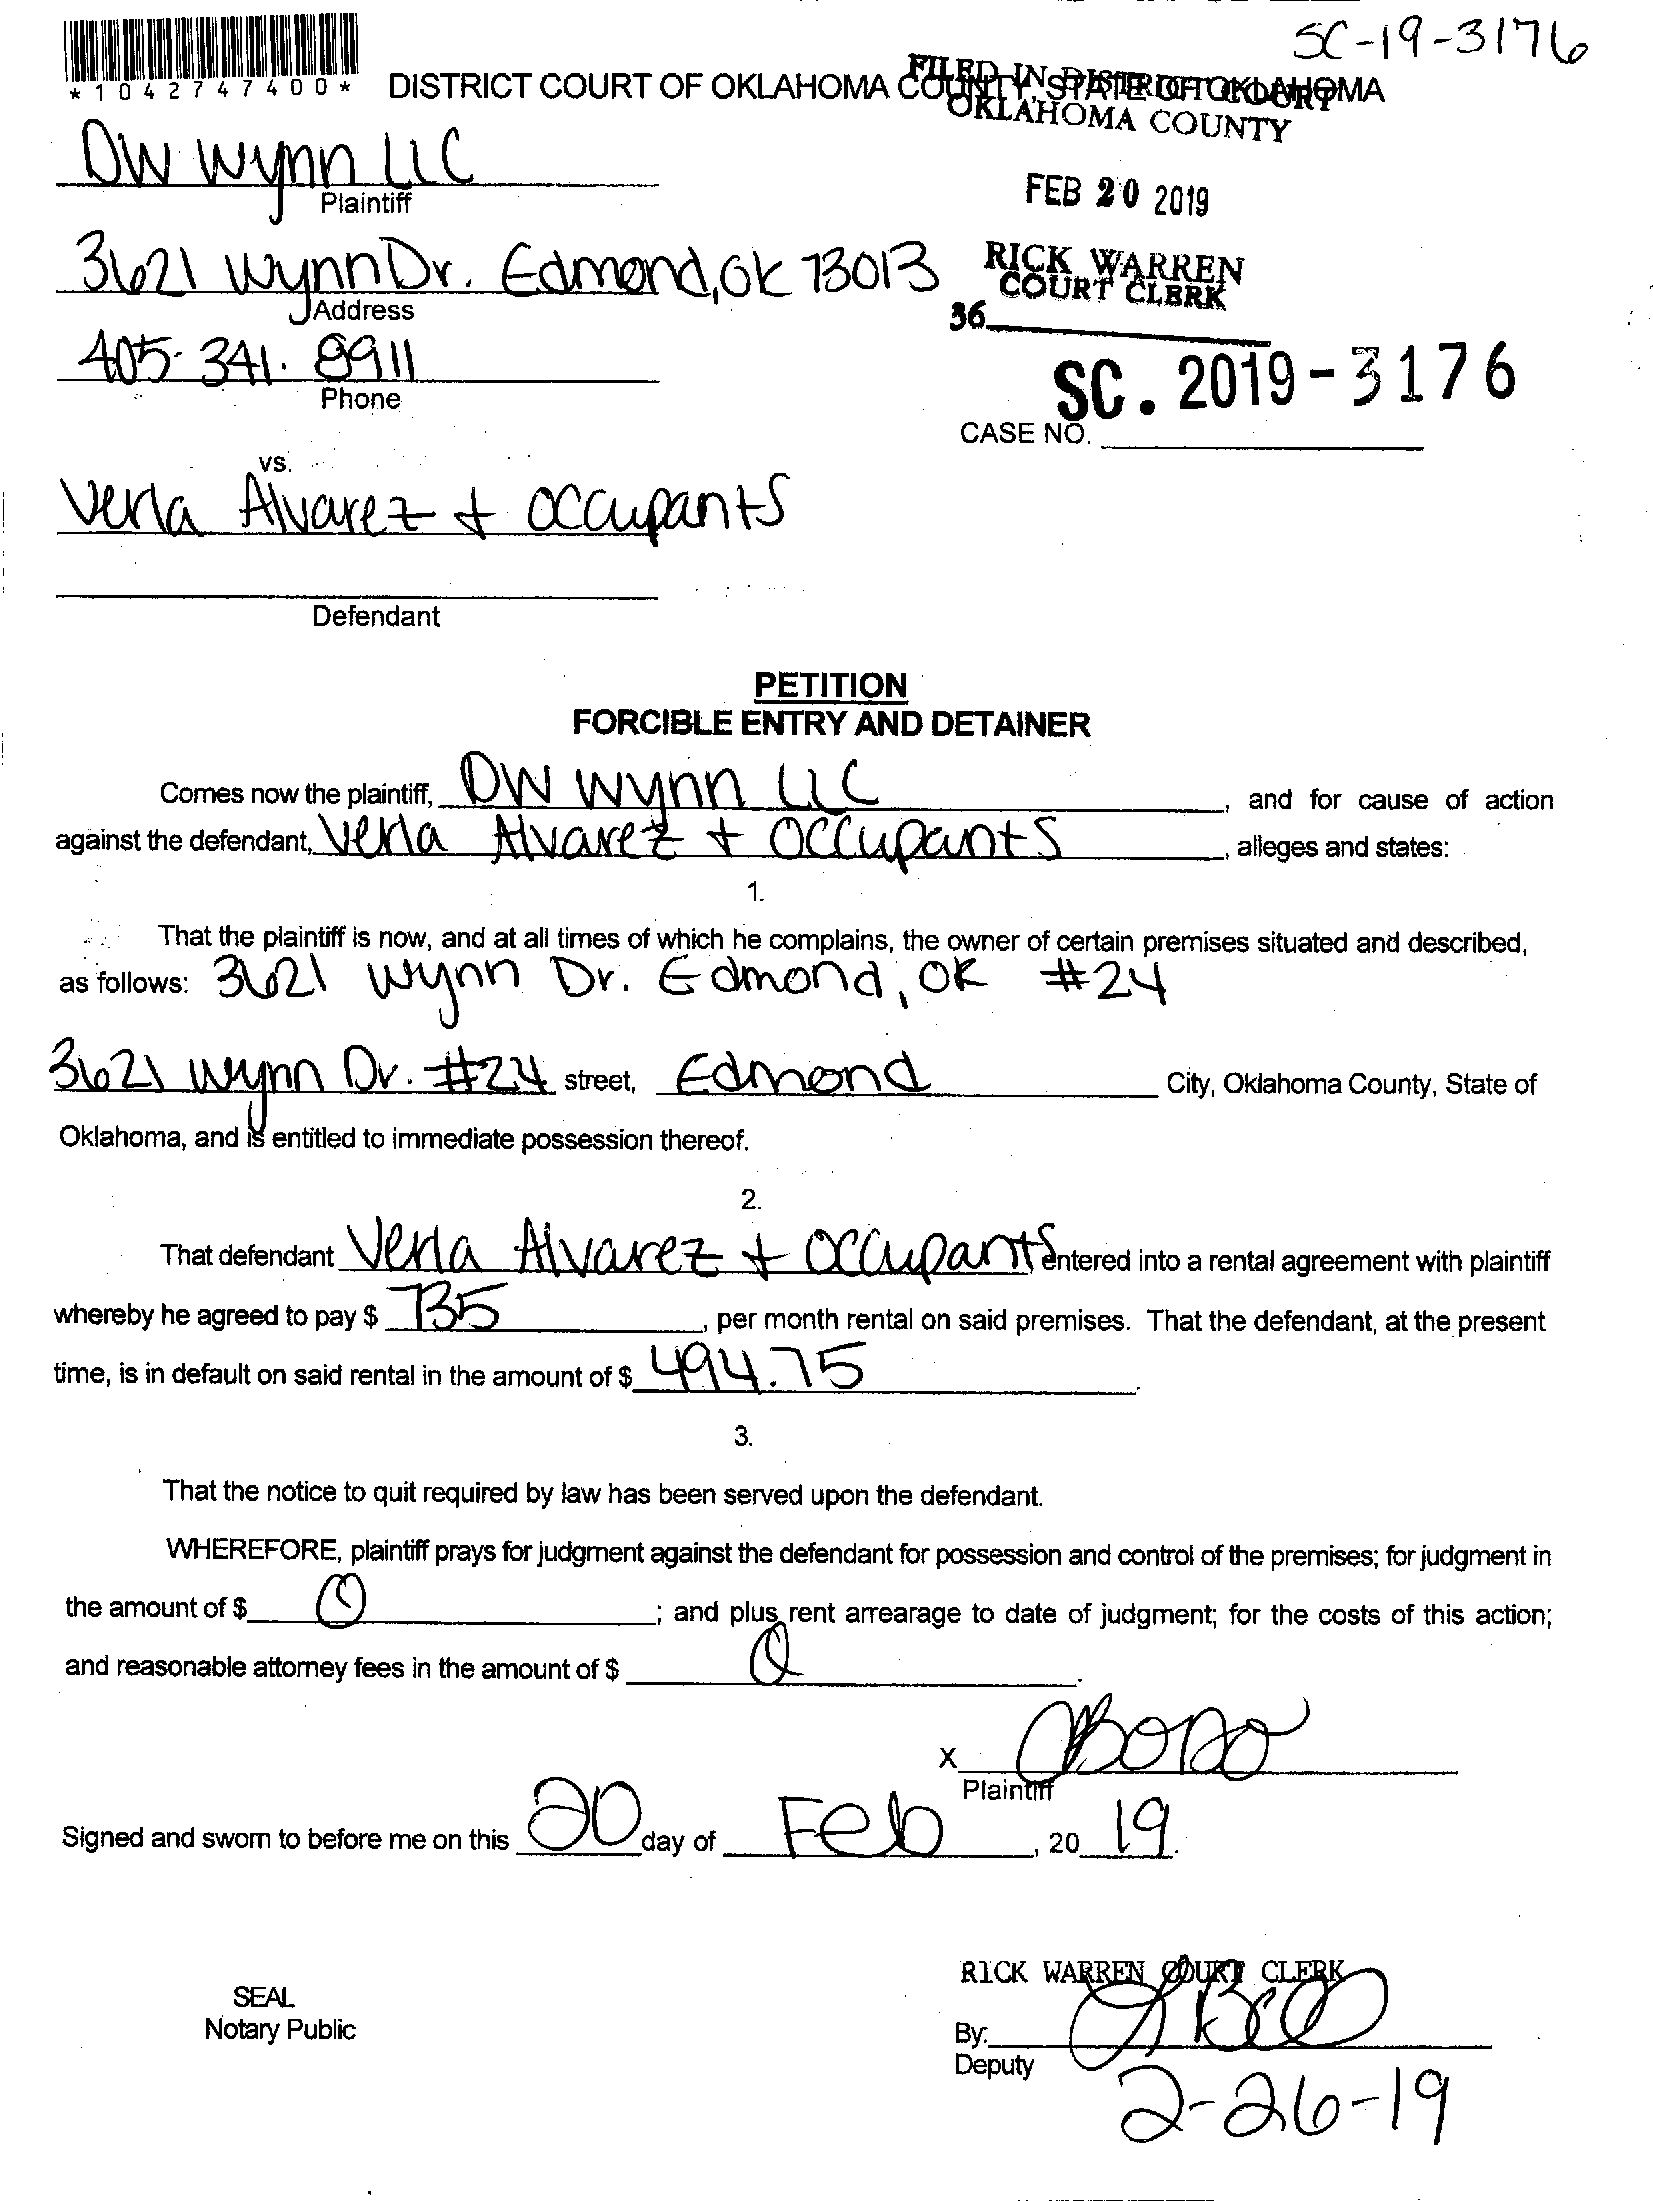 SC-19-3176
*1042747400*
DISTRICT COURT OF OKLAHOMA COUNTY STATE OF OKLAHOMA
FILED IN DISTRICT COURT
OKLAHOMA COUNTY
DW Wynn LLC
Plaintiff
FEB 20 2019
3621 Wynn Dr. Edmond, OK 73013
Address
RICK WARREN
COURT CLERK
36
405-341-8911
Phone
SC. 2019-3176
CASE NO.
vs.
Verla Alvarez + occupants
Defendant
PETITION
FORCIBLE ENTRY AND DETAINER
Comes now the plaintiff, DW Wynn LLC, and for cause of action
against the defendant, Verla Alvarez + Occupants, alleges and states:
1.
That the plaintiff is now, and at all times of which he complains, the owner of certain premises situated and described,
as follows: 3621 Wynn Dr. Edmond, OK #24
3621 Wynn Dr. #24 street, Edmond City, Oklahoma County, State of
Oklahoma, and is entitled to immediate possession thereof.
2.
That defendant Verla Alvarez + Occupants entered into a rental agreement with plaintiff
whereby he agreed to pay $ 735, per month rental on said premises. That the defendant, at the present
time, is in default on said rental in the amount of $ 494.75.
3.
That the notice to quit required by law has been served upon the defendant.
WHEREFORE, plaintiff prays for judgment against the defendant for possession and control of the premises; for judgment in
the amount of $ 0; and plus rent arrearage to date of judgment; for the costs of this action;
and reasonable attorney fees in the amount of $ 0.
X
Plaintiff
Signed and sworn to before me on this 20 day of Feb, 20 19.
SEAL
Notary Public
RICK WARREN COURT CLERK
By:
Deputy
2-26-19